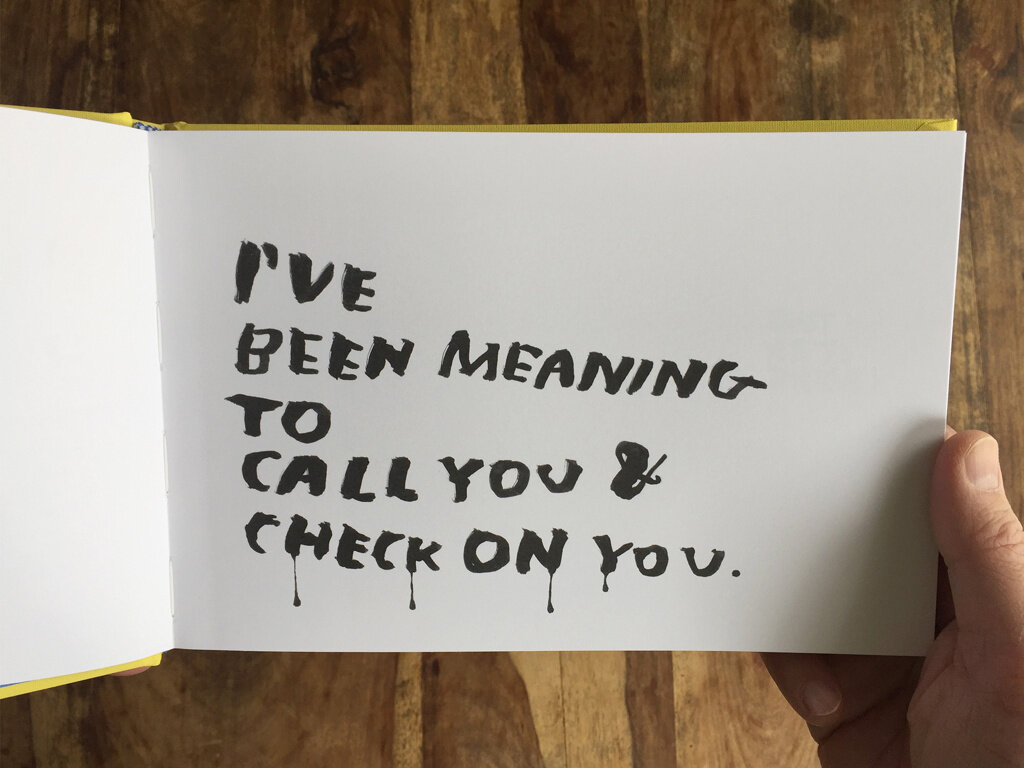 I'VE
BEEN MEANING
TO
CALL YOU &
CHECK ON YOU.